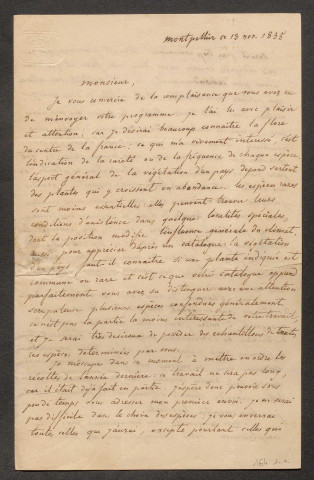 montpellier ce 13 nov. 1835
monsieur,
Je vous remercie de la complaisance que vous avez eu
de m'envoyer votre programme je l'ai lu avec plaisir
et attention, car je désirai beaucoup connaître la flore
du centre de la france; ce qui m'a vivement interessé c'est
l'indication de la rareté ou de la fréquence de chaque espèce
l'aspect général de la végétation d'un pays dépend surtout
des plantes qui y croissent en abondance. les espèces rares
sont moins essentielles elles peuvent trouver leurs
conditions d'existence dans quelques localités spéciales
dont la position modifie l'influence générale du climat
aussi pour apprécier d'après un catalogue la végétation
d'un pays faut-il connaître si une plante indiquée est
commune ou rare et c'est ce que votre catalogue apprend
parfaitement vous avez su distinguer avec une attention
scrupuleuse plusieurs espèces confondues généralement
ce n'est pas la partie la moins intéressante de votre travail,
et je serai très désireux de posséder des échantillons de toutes
ces espèces déterminées par vous.
Je m'occupe dans ce moment à mettre en ordre les
récoltes de l'année dernière. ce travail ne sera pas long
car il était déjà fait en partie j'espère donc pouvoir sous
peu de temps vous adresser mon premier envoi. je ne serai
pas difficile dans le choix des espèces; je vous enverrai
toutes celles que j'aurai, excepté pourtant celles qui